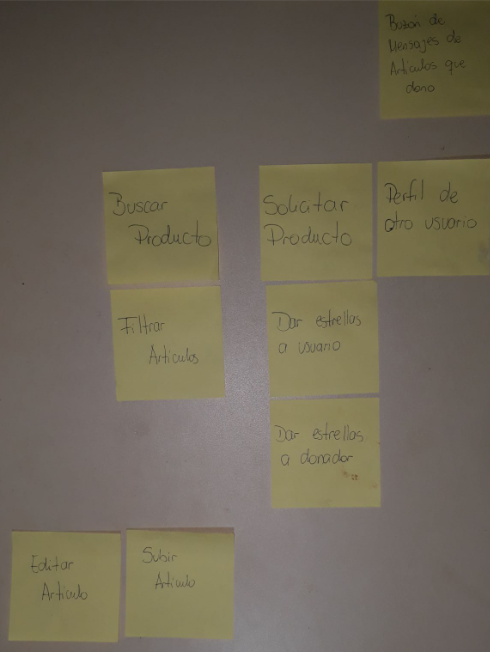 Buzón de
Mensajes de
Artículos que
dono
Buscar
Producto
Solicitar
Producto
Perfil de
otro usuario
Filtrar
Artículos
Dar estrellas
a usuario
Dar estrellas
a donador
Editar
Artículo
Subir
Artículo